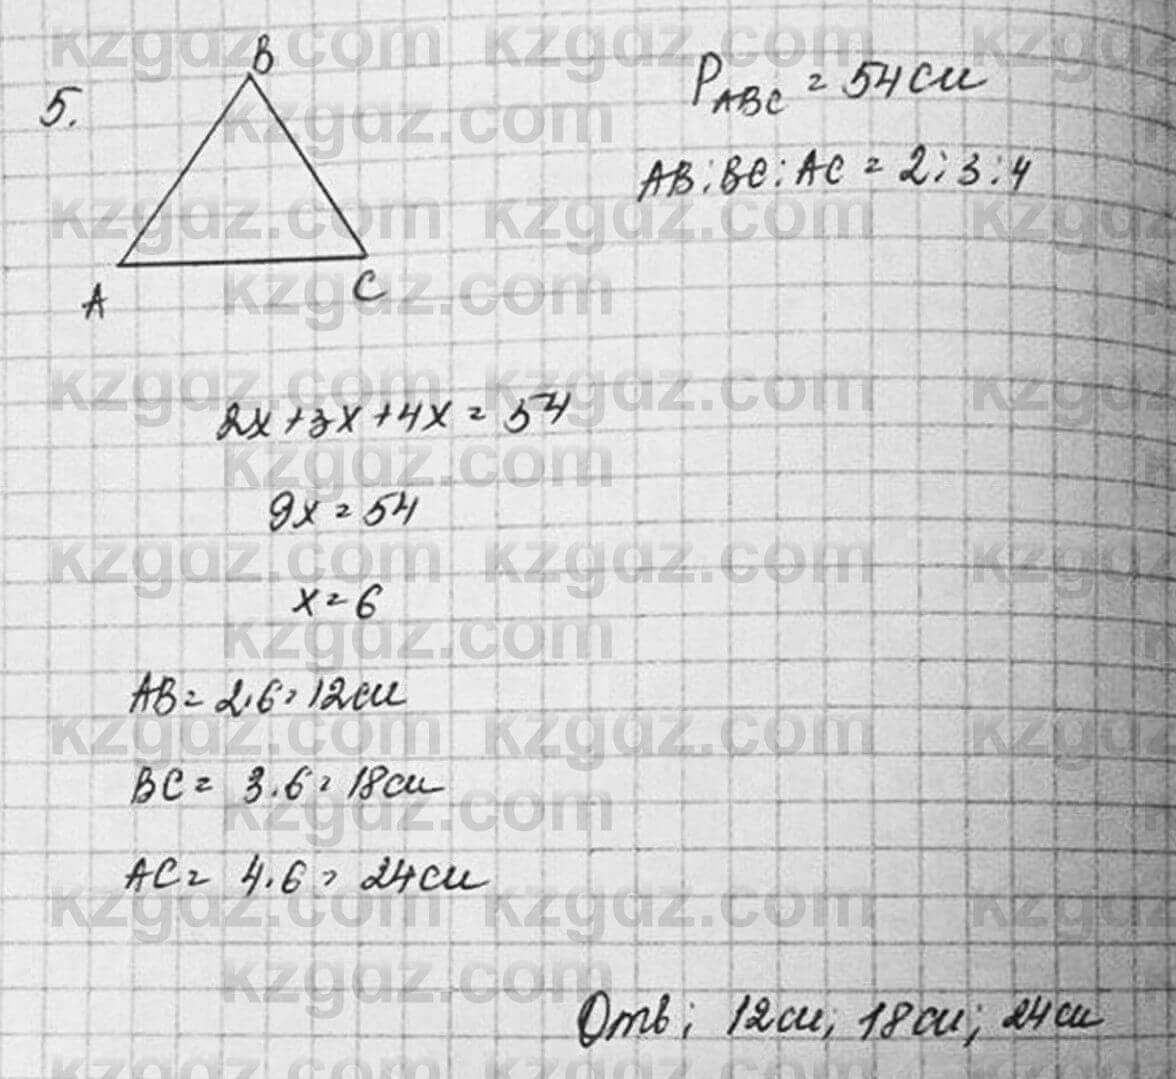 5.
B
A
C
P_ABC = 54 см
AB : BC : AC = 2 : 3 : 4
2x + 3x + 4x = 54
9x = 54
x = 6
AB = 2 · 6 = 12 см
BC = 3 · 6 = 18 см
AC = 4 · 6 = 24 см
Отв: 12 см; 18 см; 24 см
kzgdz.com